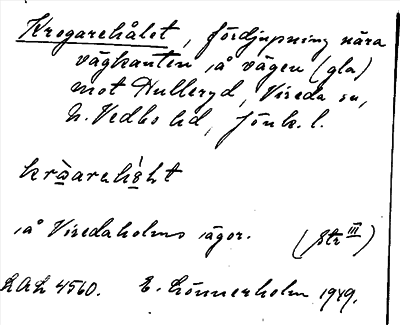 Krogarehålet, fördjupning nära
vägkanten på vägen (gla)
mot Hulleryd, Vireda sn,
N. Vedbo hd, Jönk. l.
kràarehɷ̀lət
på Viredaholms ägor. (str III)
LAL 4560. E. Lönnerholm 1949.